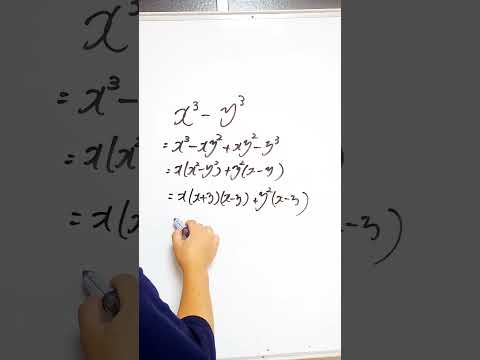 x³ - y³
= x³ - xy² + xy² - y³
= x(x² - y²) + y²(x - y)
= x(x + y)(x - y) + y²(x - y)